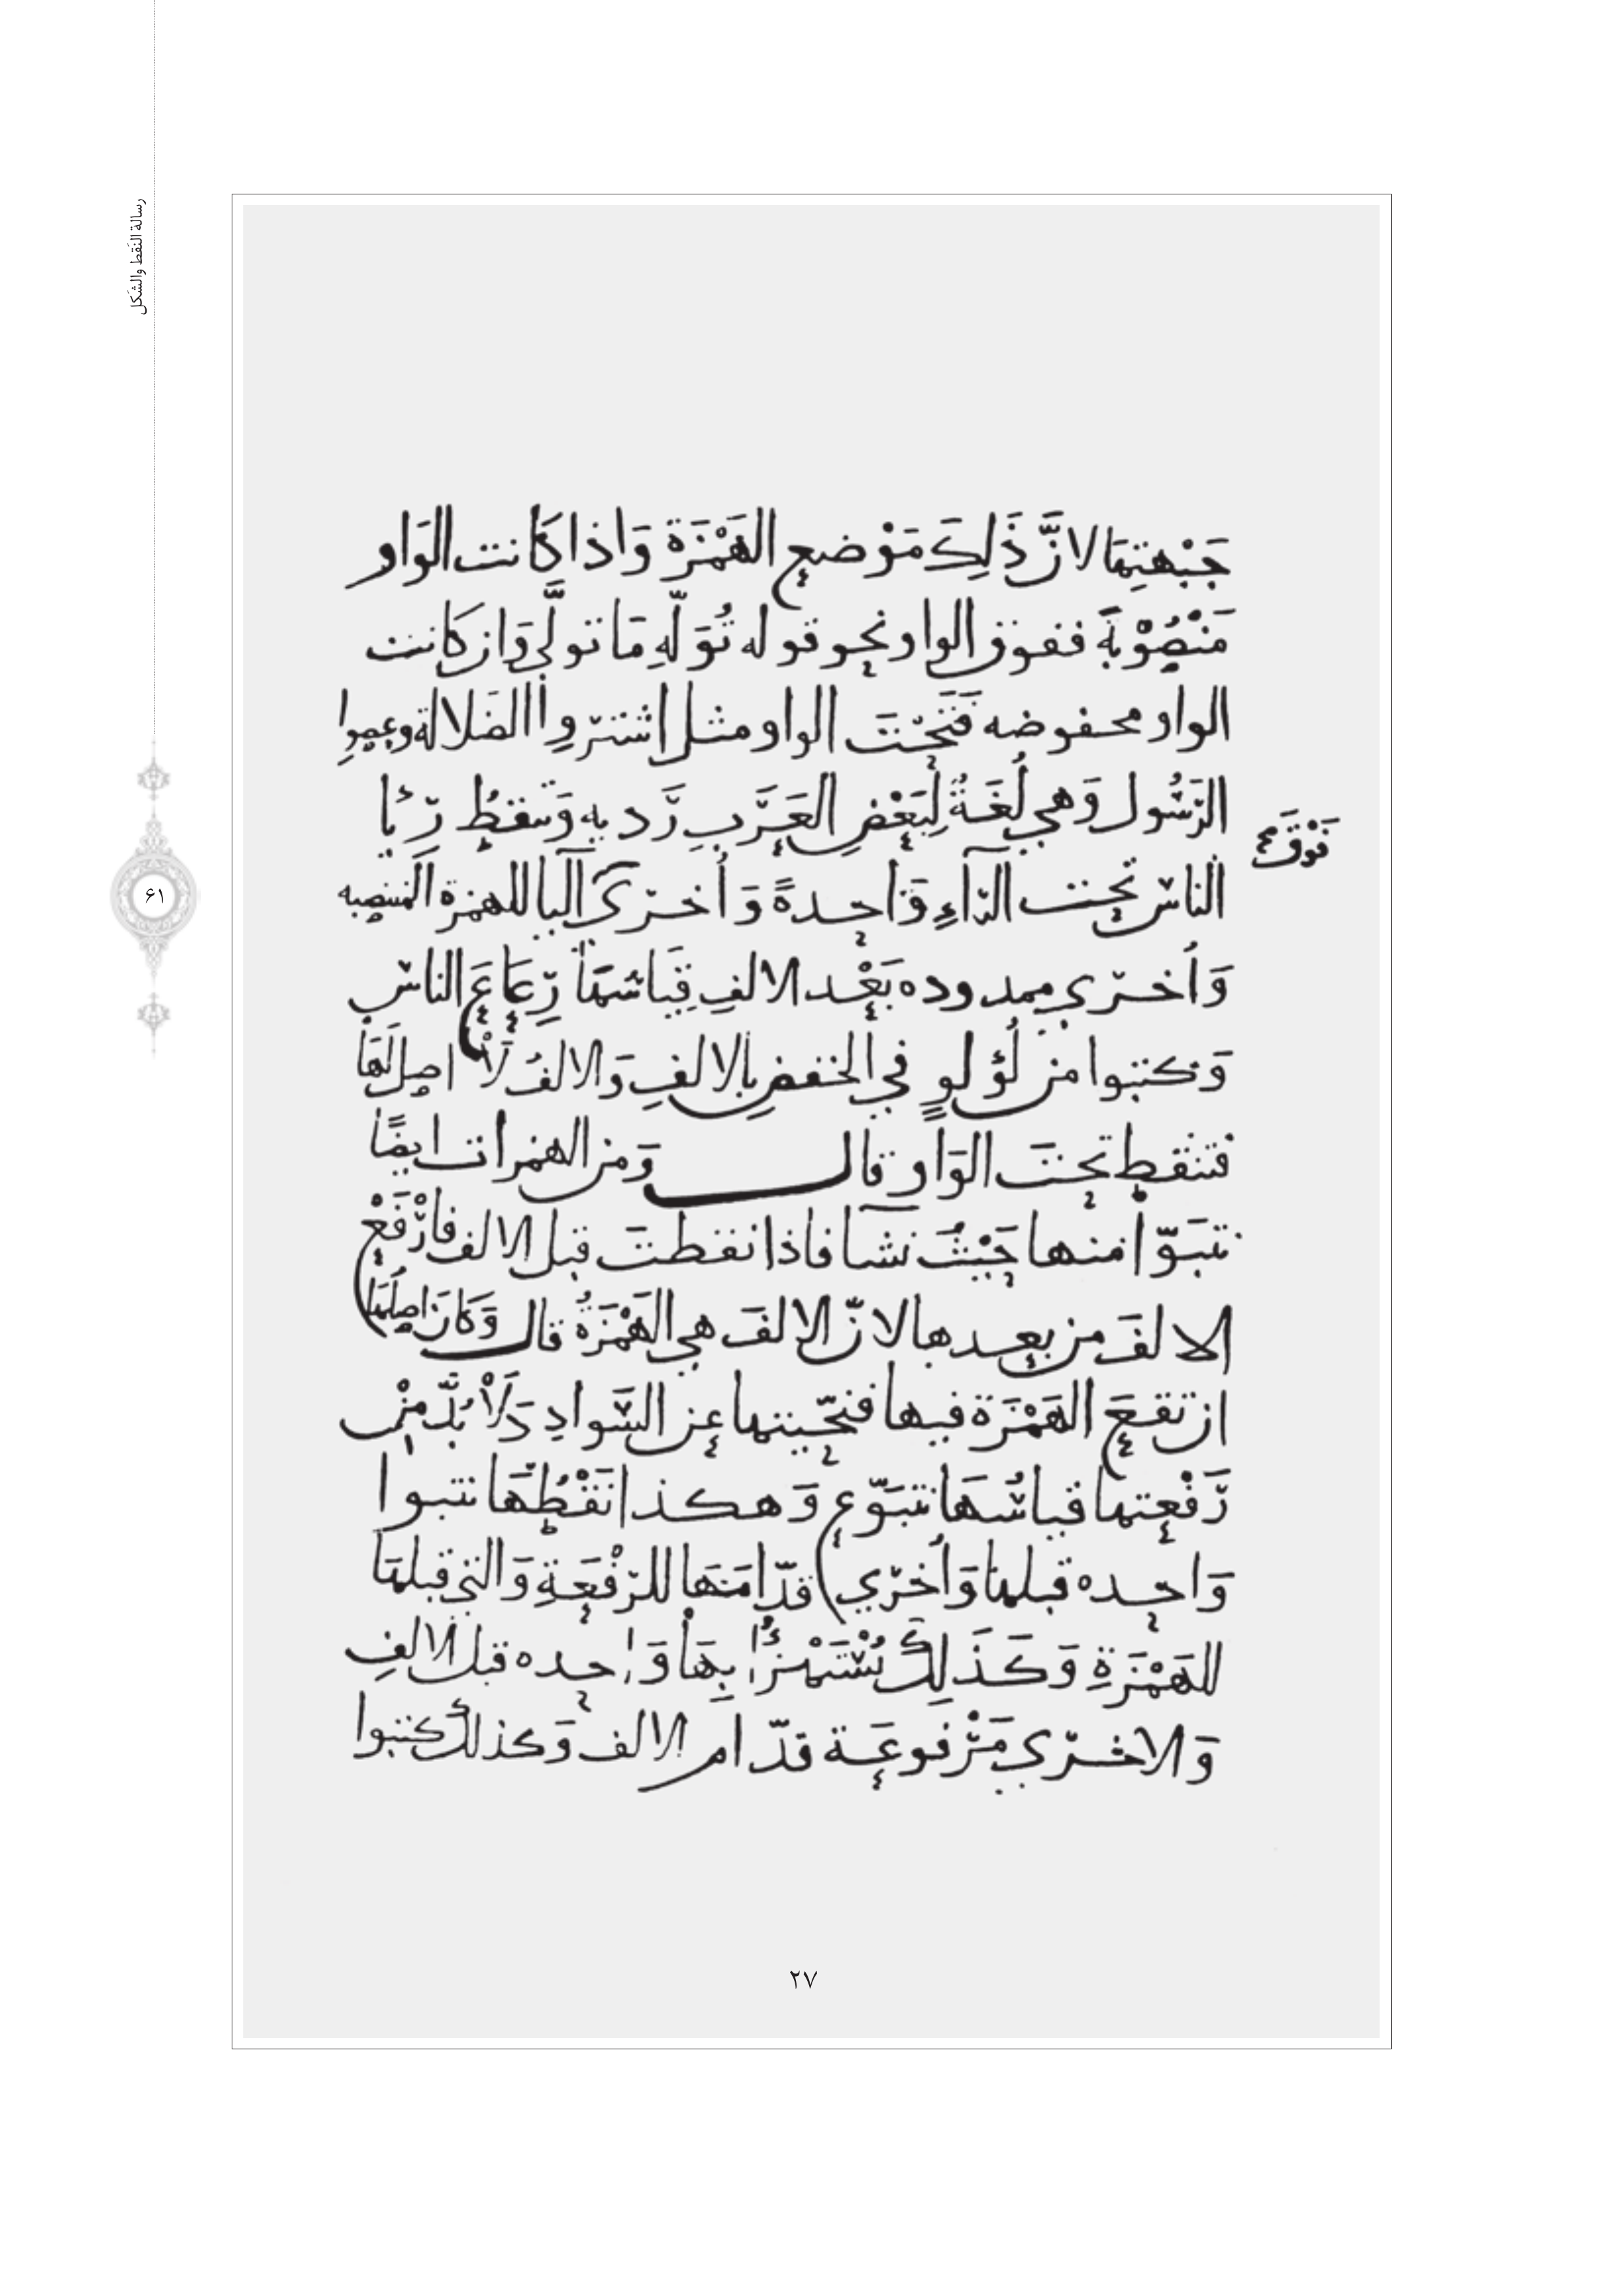 رسالة النَقط والشَكل
۶۱
جَبْهتِهَا لانَّ ذَلِكَ مَوْضع الهَمْزَة وَاذا كَانت الوَاو
مَنْصُوْبَةً ففوق الواو نحو قوله نُوَلّهِ مَا تولَّى وَان كانت
الواو مخفوضه فَتَحْتَ الواو مثل اشتَرَوِا الضَلالة وعصوِا
الرَّسُول وَهي لُغَةٌ لِبَعْضِ العَرَبِ رَديه وَتنقطُ رِئَا
فَوْقَ
الناس تحت الرّاءِ وَاحدةً وَأخرَى اليا للهمزة المنتصبه
وَأخرَى ممدوده بَعْد الالفِ قِيَاسُهَا رِعَاعَ الناس
وَكتبوا من لُؤلوٍ في الخفضِ بالالفِ وَالالفُ لَا اصل لَهَا
فتنقط تحتَ الوَاو قال وَمن الهمزات ايضًا
نتبَوّا منها حَيْثُ نشآ فاذا نقطتَ قبل الالف فارْفَعْ
الالفَ من بعدها لانّ الالفَ هي الهَمْزَةُ قال وَكانَ اصلُهَا
ان تقعَ الهَمْزَة فيها فنحّيتها عن السَّوادِ وَلَا بُدَّ مِنْ
رَفْعتها قياسُهَا نتبَوّع وَهكذا نَقْطُهَا نتبوا
وَاحِده قبلها وَأخرَي قدّامَهَا للرَفْعَةِ وَالتي قبلهَا
للهَمْزَةِ وَكَذَلِكَ يُسْتَهْزَأُ بِهَا وَاحده قبل الالفِ
وَالاخرَي مَرْفوعَة قدّام الالف وَكذلك كتبوا
٢٧